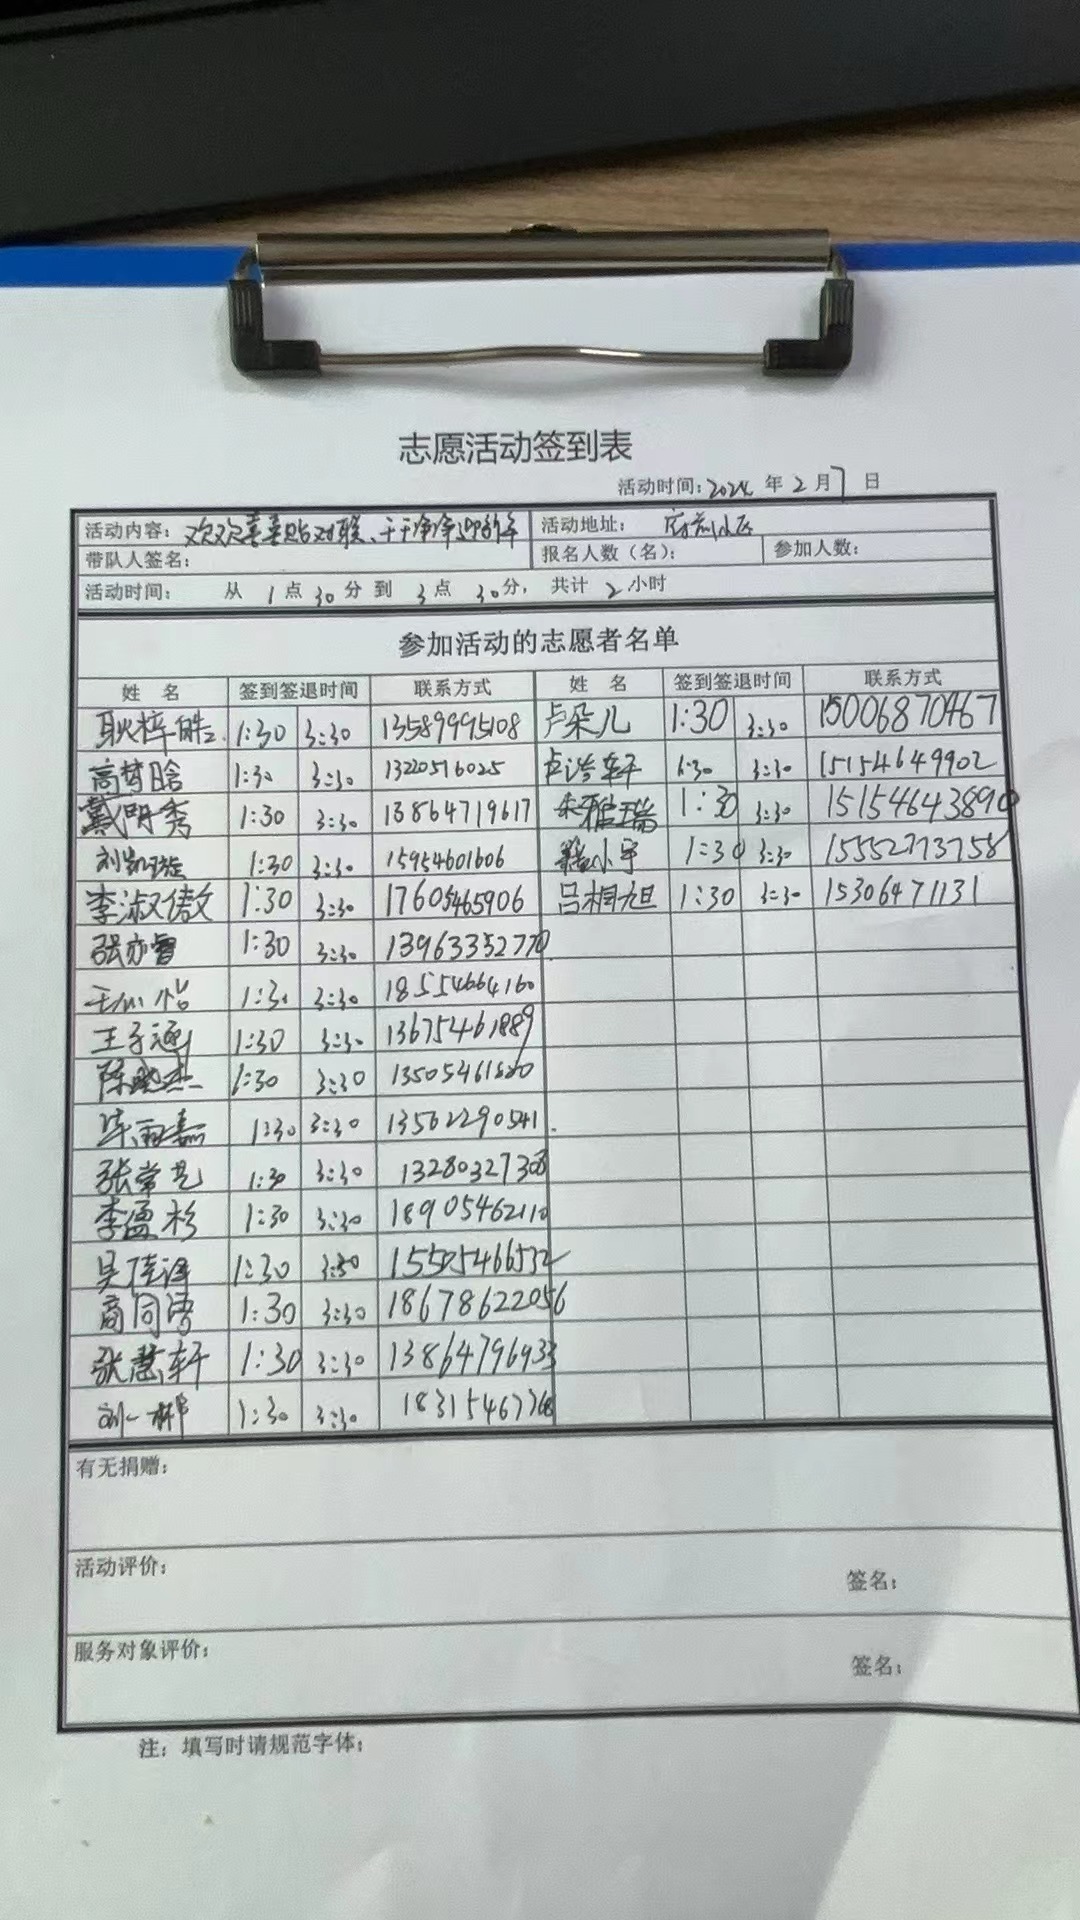 志愿活动签到表
活动时间：2024 年 2 月 7 日
活动内容：欢欢喜喜贴对联、干干净净迎新年 活动地址：府前小区
带队人签名： 报名人数（名）： 参加人数：
活动时间： 从 1 点 30 分 到 3 点 30 分， 共计 2 小时
参加活动的志愿者名单
姓 名 签到签退时间 联系方式 姓 名 签到签退时间 联系方式
耿梓皓 1:30 3:30 13589995108 卢朵儿 1:30 3:30 15006870467
高梦晗 1:30 3:30 13220516025 卢 轩 1:30 3:30 15154649902
戴明秀 1:30 3:30 13864719617 朱雅瑞 1:30 3:30 15154643890
刘凯璇 1:30 3:30 15954601606 小宇 1:30 3:30 15552773758
李淑傲 1:30 3:30 17605465906 吕相旭 1:30 3:30 15306471131
张亦睿 1:30 3:30 13963352770
1:30 3:30 18554664160
王子涵 1:30 3:30 13675461889
陈 杰 1:30 3:30
雨嘉 1:30 3:30 13562290541
张常 1:30 3:30 13280327308
李盈杉 1:30 3:30 18905462110
吴佳泽 1:30 3:30 15505466532
商同 1:30 3:30 18678622056
张慧轩 1:30 3:30 13864796933
刘一彬 1:30 3:30
有无捐赠：
活动评价：
签名：
服务对象评价：
签名：
注：填写时请规范字体；